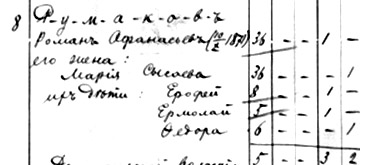 8 Р-у-м-а-к-о-в-ъ
Романъ Афанасьевъ (10/2 1871) 36 - - 1 -
его жена:
Марія Сысоева 36 - - - 1
ихъ дѣти: Ерофей 8 - - 1 -
Ермолай 5 - - 1 -
Ѳедора 6 - - - 1
5 - - 3 2